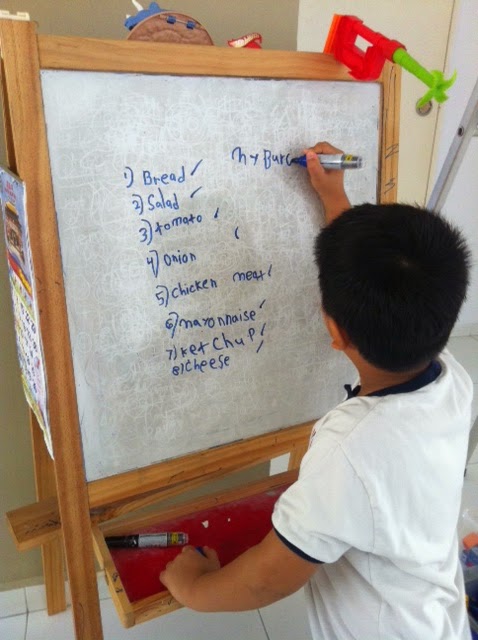 my Burg
1) Bread ✓
2) Salad ✓
3) tomato ✓
4) onion ✓
5) chicken meat ✓
6) mayonnaise ✓
7) ketchup ✓
8) cheese ✓